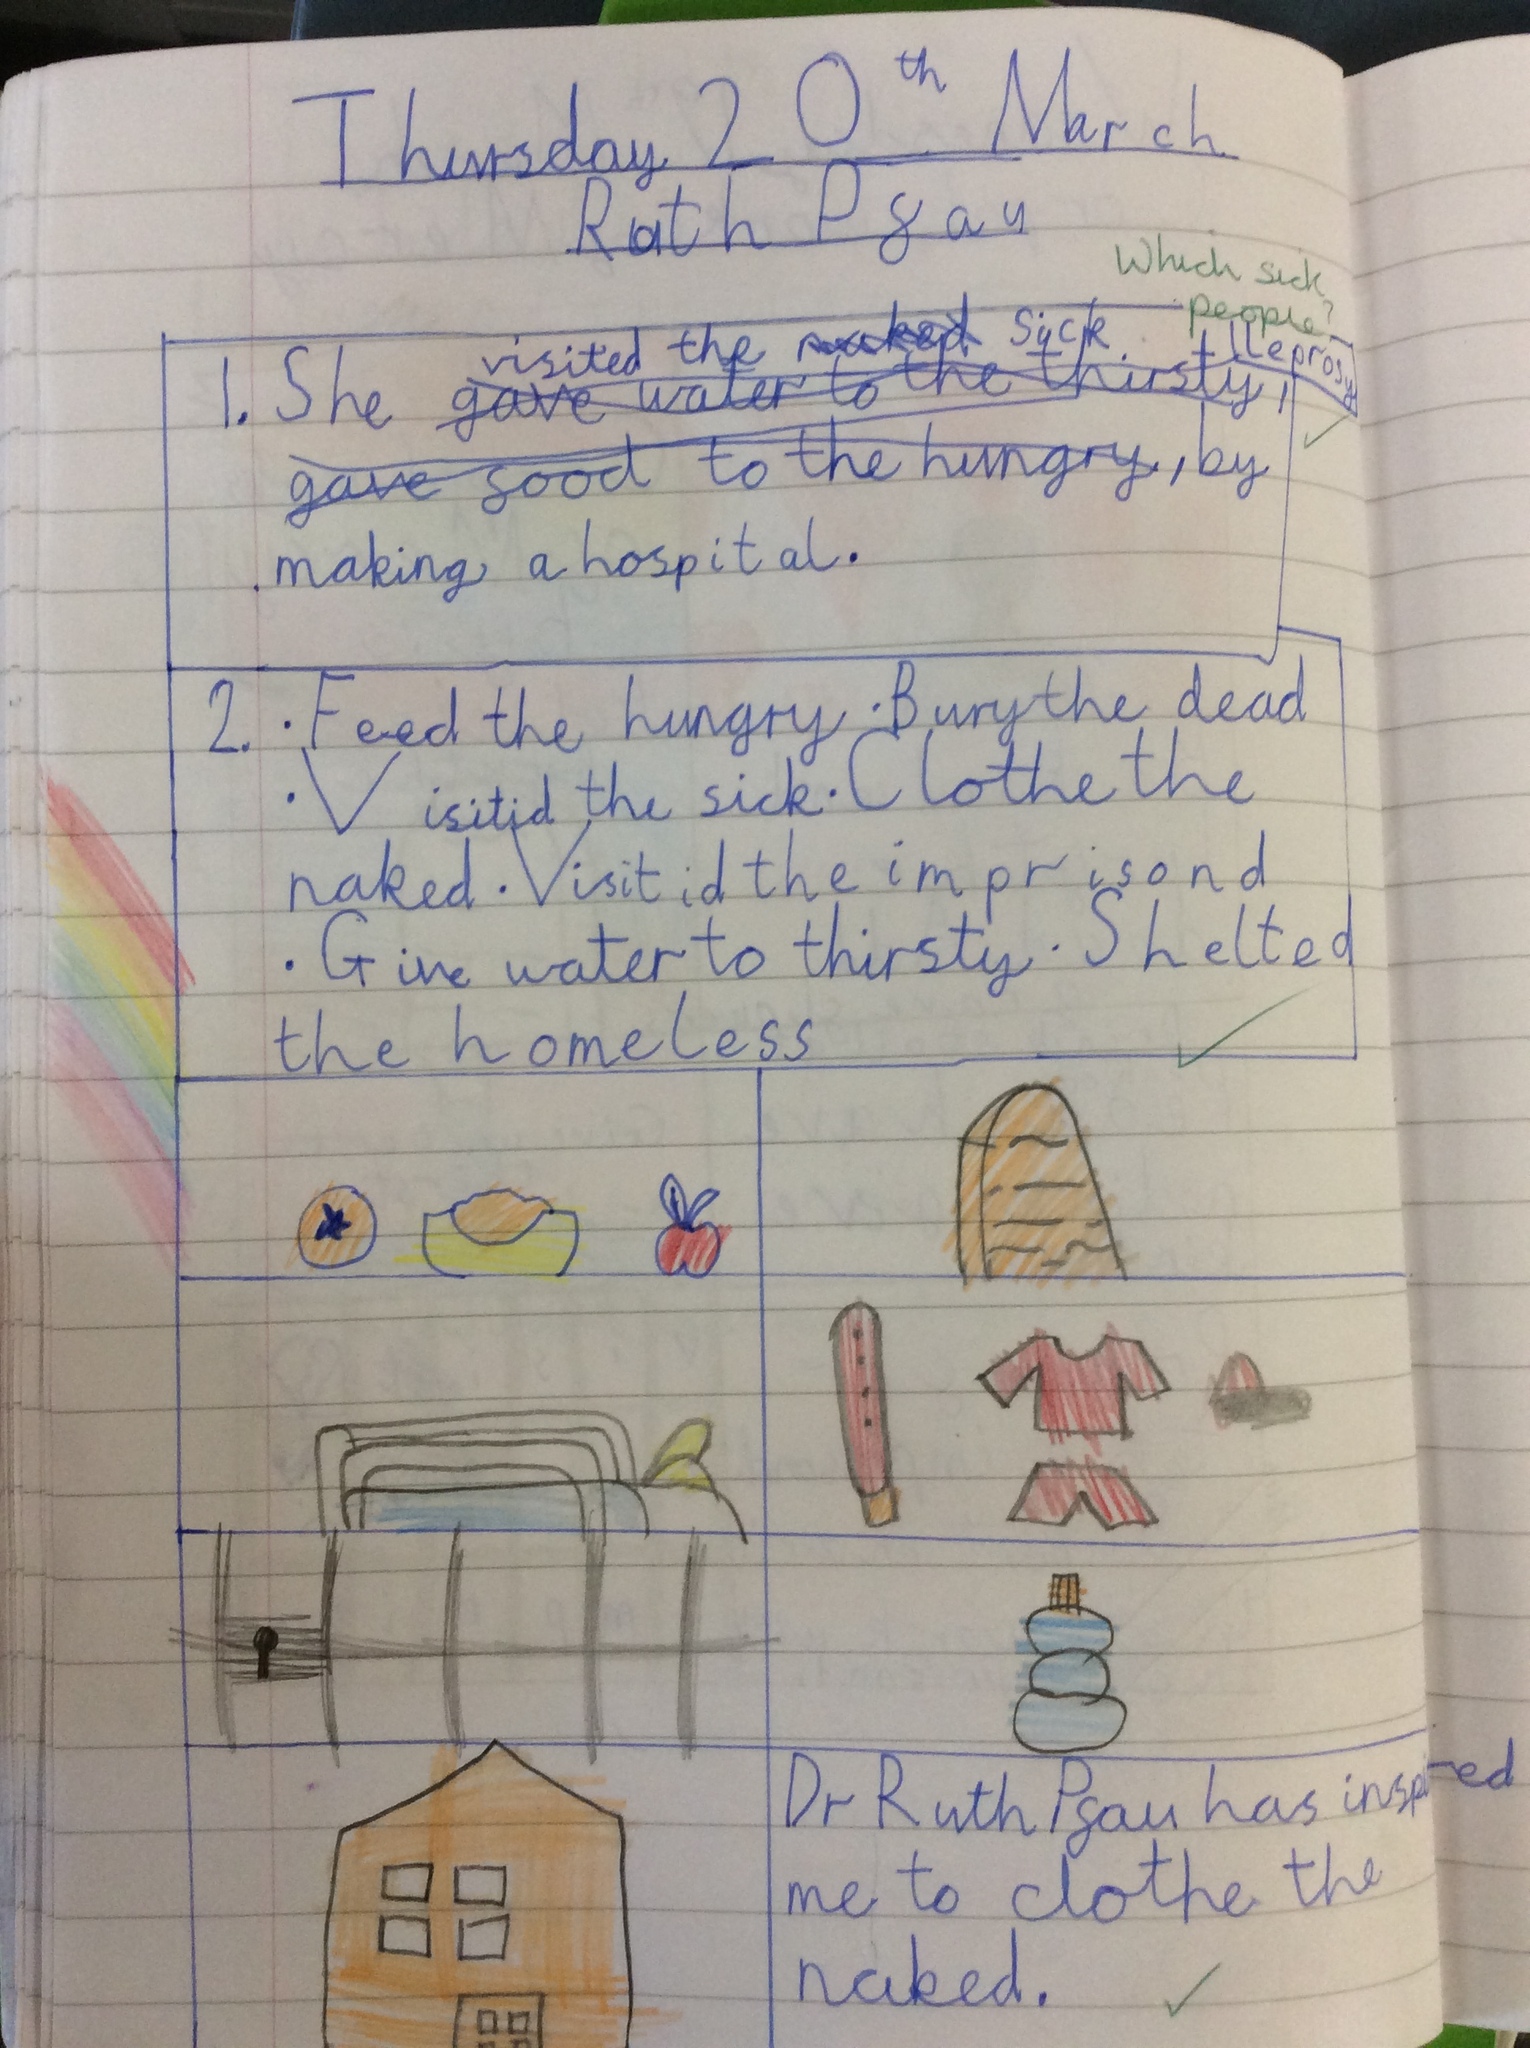 Thursday 20th March
Ruth Pgau
Which sick
people?
visited the naked sick. leprosy
1. She gave water to the thirsty,
gave good to the hungry, by
making a hospital.
2. · Feed the hungry · Bury the dead
· Visitid the sick · Clothe the
naked · Visitid the imprisond
· Give water to thirsty · Shelted
the homeless
Dr Ruth Pgau has inspired
me to clothe the
naked.